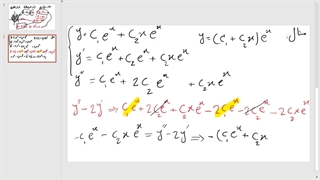 y = c₁eˣ + c₂xeˣ    y = (c₁ + c₂x)eˣ    مثال
y' = c₁eˣ + c₂eˣ + c₂xeˣ
y'' = c₁eˣ + 2c₂eˣ + c₂xeˣ
y'' - 2y' ⇒ c₁eˣ + 2c₂eˣ + c₂xeˣ - 2c₁eˣ - 2c₂eˣ - 2c₂xeˣ
-c₁eˣ - c₂xeˣ = y'' - 2y' ⇒ -(c₁eˣ + c₂x